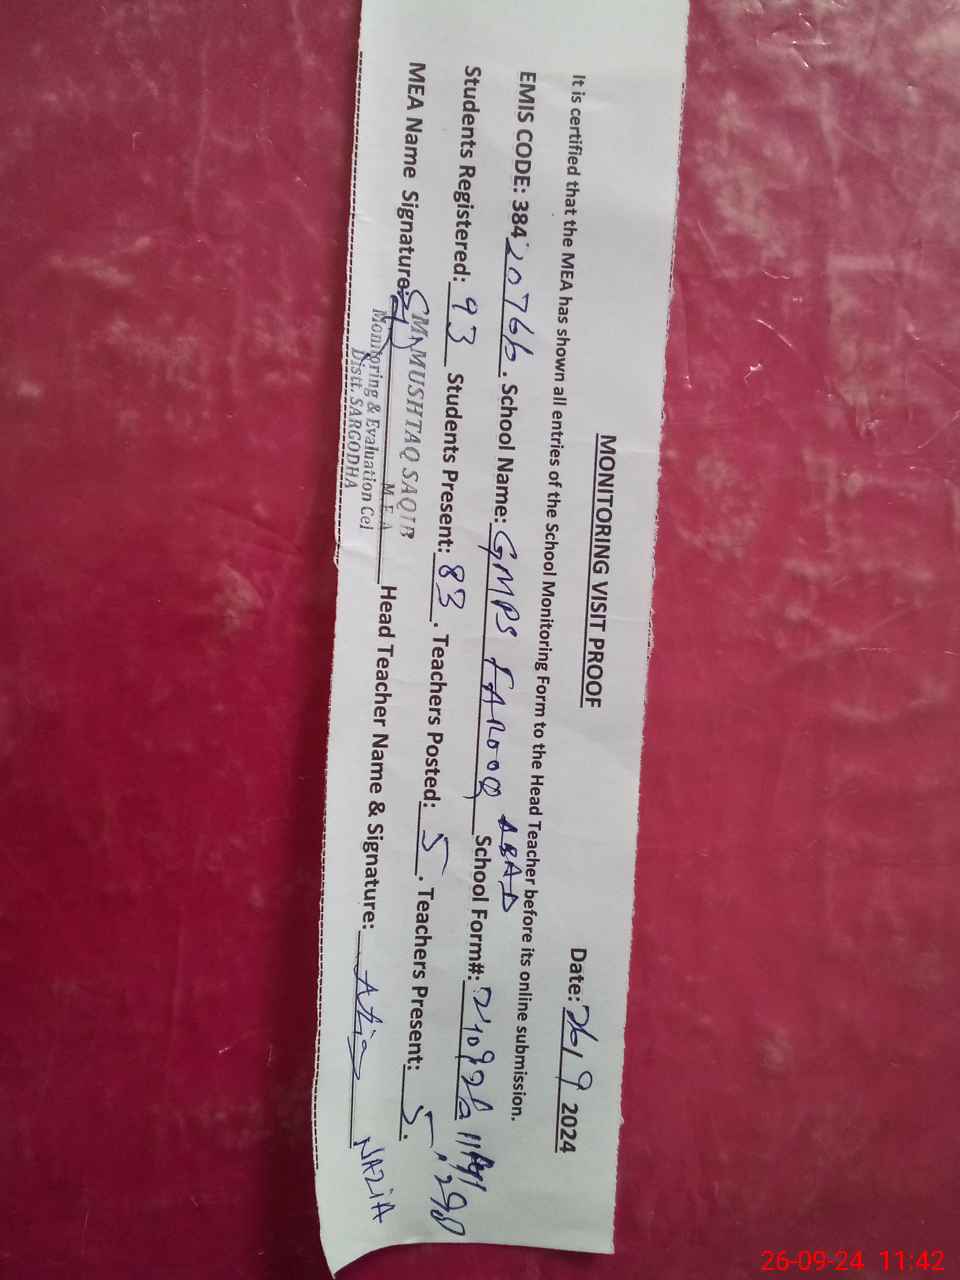 MONITORING VISIT PROOF
Date: 26/9 2024
It is certified that the MEA has shown all entries of the School Monitoring Form to the Head Teacher before its online submission.
EMIS CODE: 38420766. School Name: GMPS FAROOQ ABAD School Form#:
Students Registered: 93 Students Present: 83. Teachers Posted: 5. Teachers Present: 5.
MEA Name Signature: MUSHTAQ SAQIB Head Teacher Name & Signature: NAZIA
M.E.A
Monitoring & Evaluation Cel
Distt. SARGODHA
26-09-24 11:42